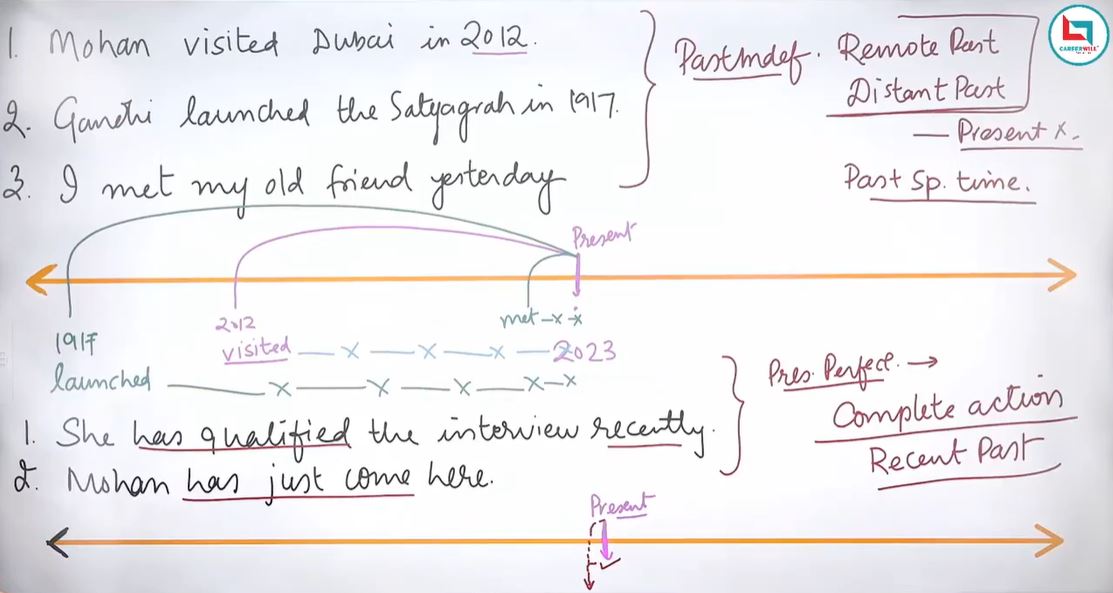 1. Mohan visited Dubai in 2012.
2. Gandhi launched the Satyagrah in 1917.
3. I met my old friend yesterday
Past Indef. Remote Past
Distant Past
— Present x.
Past Sp. time.
CAREERWILL
Present
1917
2012
met -x-x
visited — x — x — x — 2023
launched — x — x — x — x-x
1. She has qualified the interview recently.
2. Mohan has just come here.
Pres. Perfect. →
Complete action
Recent Past
Present